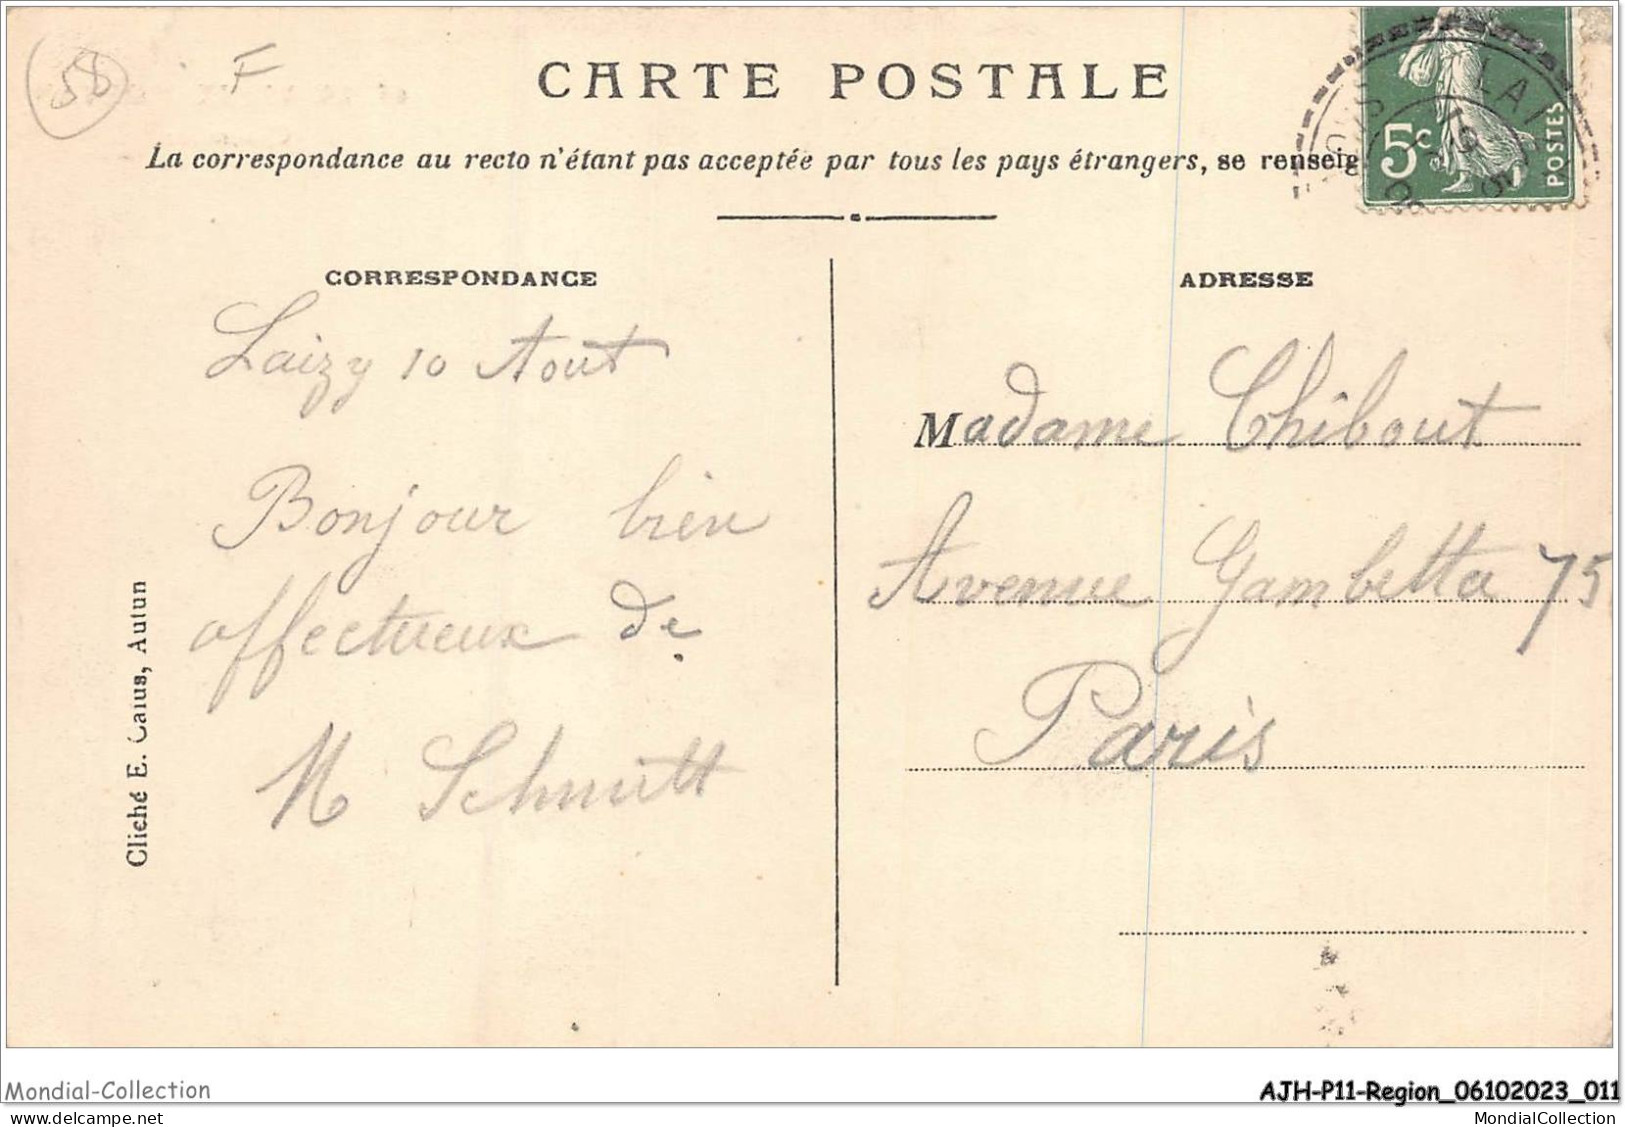 58
F
CARTE POSTALE
La correspondance au recto n'étant pas acceptée par tous les pays étrangers, se renseig
5c
POSTES
CORRESPONDANCE
Laizy 10 Aout
Bonjour bien
affectueux de
M Schmitt
Cliché E. Caïus, Autun
ADRESSE
Madame Chibout
Avenue Gambetta 75
Paris
Mondial-Collection
AJH-P11-Region_06102023_011
© delcampe.net
MondialCollection